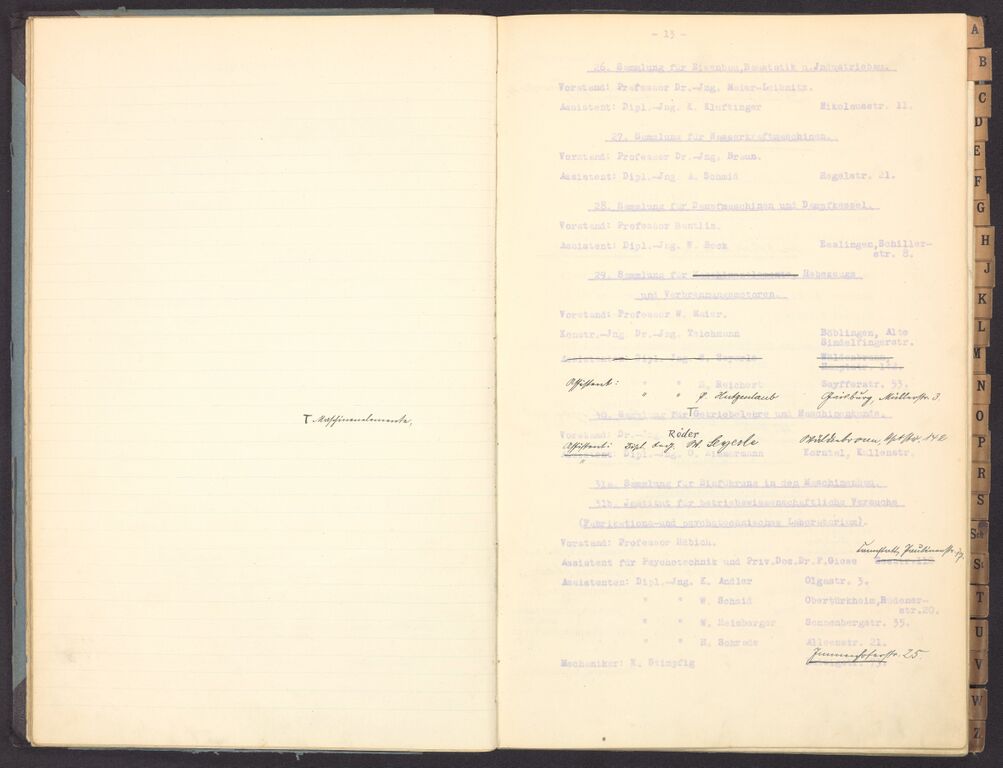 ⊤ Maschinenelemente,
- 13 -
26. Sammlung für Eisenbau, Baustatik u. Jndustriebau.
Vorstand: Professor Dr.-Jng. Maier-Leibnitz.
Assistent: Dipl.-Jng. K. Kluftinger Nikolausstr. 11.
27. Sammlung für Wasserkraftmaschinen.
Vorstand: Professor Dr.-Jng. Braun.
Assistent: Dipl.-Jng. A. Schmid Hegelstr. 21.
28. Sammlung für Dampfmaschinen und Dampfkessel.
Vorstand: Professor Bantlin.
Assistent: Dipl.-Jng. W. Bock Esslingen, Schiller-
str. 8.
29. Sammlung für Maschinenelemente, Hebezeuge
und Verbrennungsmotoren.
Vorstand: Professor W. Maier.
Konstr.-Jng. Dr.-Jng. Teichmann Böblingen, Alte
Sindelfingerstr.
Assistenten: Dipl. Jng. W. Seyerle Waldenbronn,
Hauptstr. 142.
Assistent: " " H. Reichert Seyfferstr. 53.
" " F. Hutzenlaub Gaisburg, Müllerstr. 3.
30. Sammlung für ⊤ Getriebelehre und Maschinenkunde.
Vorstand: Dr.-Jng. Röder
Assistent: Dipl. Jng. W. Seyerle Waldenbronn, Hptstr. 142
Assistent: Dipl.-Jng. O. Korntal, Kullenstr.
31a. Sammlung für Einführung in den Maschinenbau.
31b. Jnstitut für betriebswissenschaftliche Versuche
(Fabrikations-und psychotechnisches Laboratorium).
Vorstand: Professor Häbich. Cannstatt, Paulinenstr.
Assistent für Psychotechnik und Priv.Doz.Dr.F.Giese
Assistenten: Dipl.-Jng. K. Andler Olgastr. 3.
" " W. Schmid Obertürkheim, Rüdener-
str.20.
" " W. Heisberger Sonnenbergstr. 35.
" " H. Schrade Alleenstr. 21.
Jmmenhoferstr. 25.
Mechaniker: K. Stimpfig